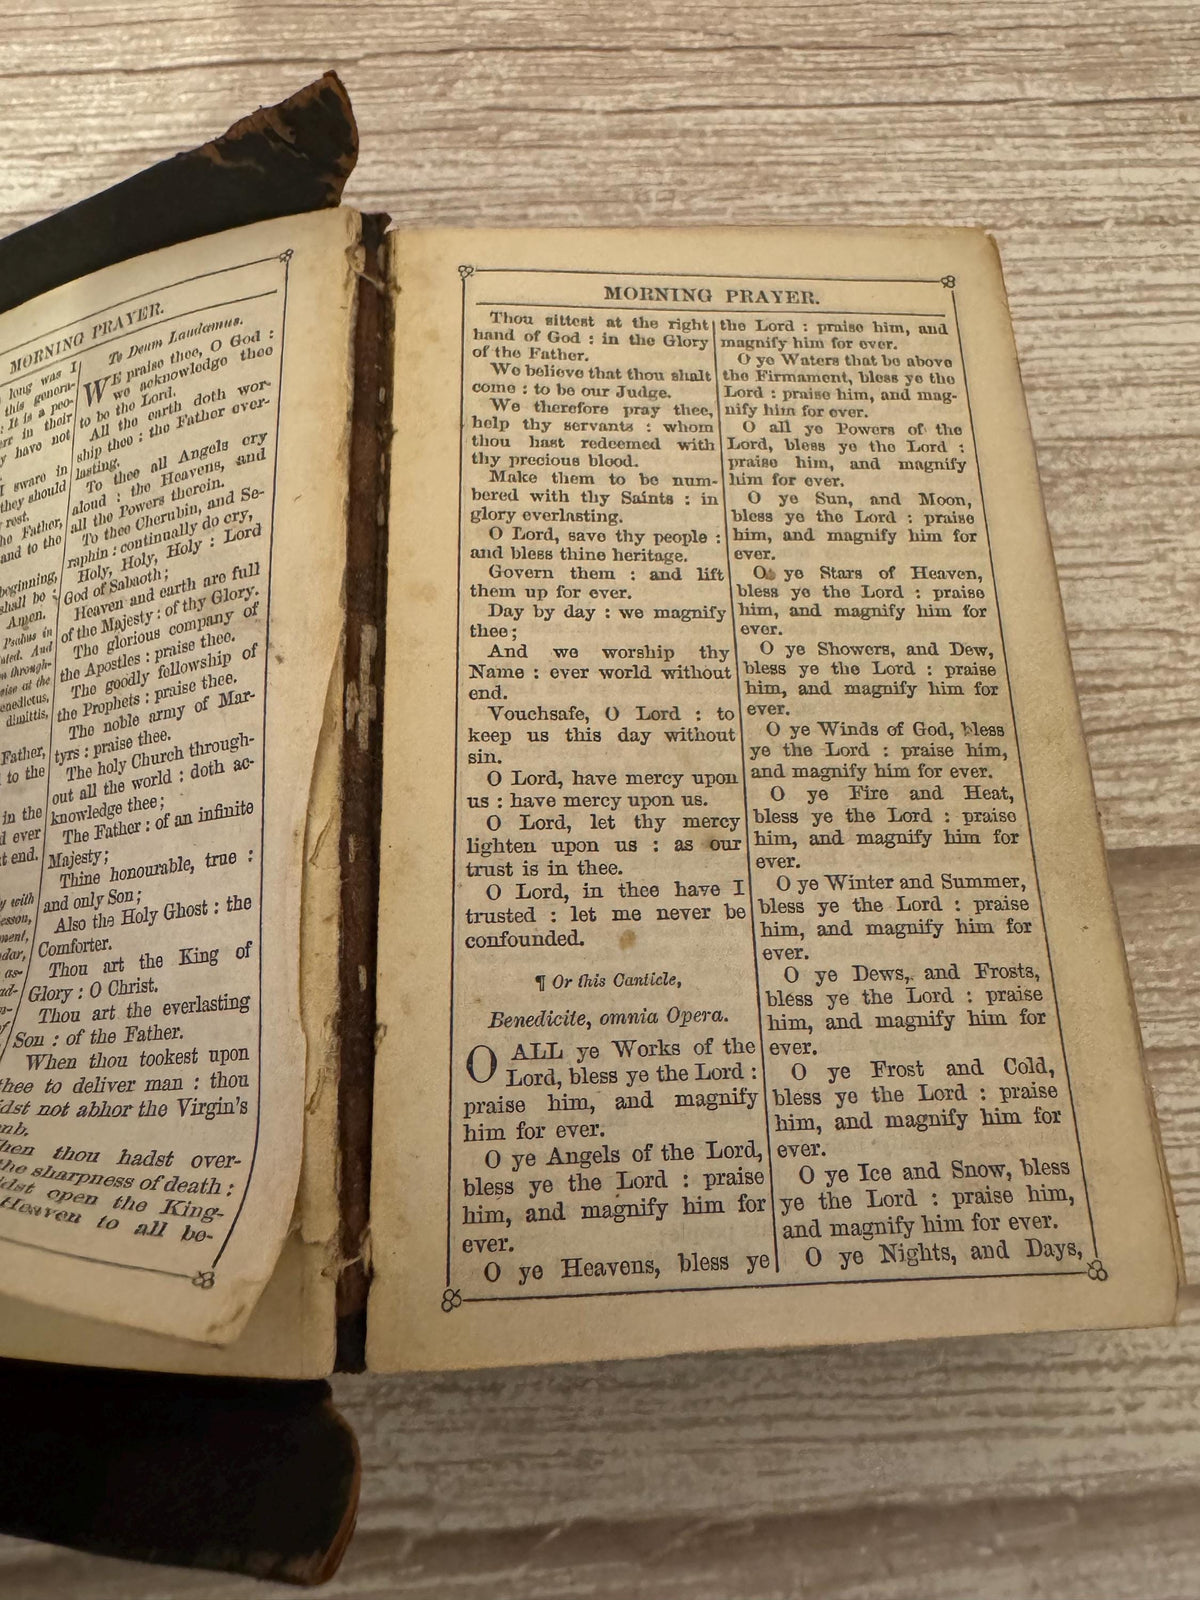 MORNING PRAYER.
long was I
this genera-
: It is a peo-
in their
have not
I sware in
they should
rest.
Father,
and to the
beginning,
shall be :
Amen.
Psalms in
And
through-
at the
dimittis,
Father,
to the
in the
ever
end.
with
as-
Te Deum Laudamus.
WE praise thee, O God :
we acknowledge thee
to be the Lord.
All the earth doth wor-
ship thee : the Father ever-
lasting.
To thee all Angels cry
aloud : the Heavens, and
all the Powers therein.
To thee Cherubin, and Se-
raphin : continually do cry,
Holy, Holy, Holy : Lord
God of Sabaoth;
Heaven and earth are full
of the Majesty : of thy Glory.
The glorious company of
the Apostles : praise thee.
The goodly fellowship of
the Prophets : praise thee.
The noble army of Mar-
tyrs : praise thee.
The holy Church through-
out all the world : doth ac-
knowledge thee;
The Father : of an infinite
Majesty;
Thine honourable, true :
and only Son;
Also the Holy Ghost : the
Comforter.
Thou art the King of
Glory : O Christ.
Thou art the everlasting
Son : of the Father.
When thou tookest upon
thee to deliver man : thou
not abhor the Virgin's
thou hadst over-
the sharpness of death :
open the King-
Heaven to all be-
MORNING PRAYER.
Thou sittest at the right
hand of God : in the Glory
of the Father.
We believe that thou shalt
come : to be our Judge.
We therefore pray thee,
help thy servants : whom
thou hast redeemed with
thy precious blood.
Make them to be num-
bered with thy Saints : in
glory everlasting.
O Lord, save thy people :
and bless thine heritage.
Govern them : and lift
them up for ever.
Day by day : we magnify
thee;
And we worship thy
Name : ever world without
end.
Vouchsafe, O Lord : to
keep us this day without
sin.
O Lord, have mercy upon
us : have mercy upon us.
O Lord, let thy mercy
lighten upon us : as our
trust is in thee.
O Lord, in thee have I
trusted : let me never be
confounded.
¶ Or this Canticle,
Benedicite, omnia Opera.
O ALL ye Works of the
Lord, bless ye the Lord :
praise him, and magnify
him for ever.
O ye Angels of the Lord,
bless ye the Lord : praise
him, and magnify him for
ever.
O ye Heavens, bless ye
the Lord : praise him, and
magnify him for ever.
O ye Waters that be above
the Firmament, bless ye the
Lord : praise him, and mag-
nify him for ever.
O all ye Powers of the
Lord, bless ye the Lord :
praise him, and magnify
him for ever.
O ye Sun, and Moon,
bless ye the Lord : praise
him, and magnify him for
ever.
O ye Stars of Heaven,
bless ye the Lord : praise
him, and magnify him for
ever.
O ye Showers, and Dew,
bless ye the Lord : praise
him, and magnify him for
ever.
O ye Winds of God, bless
ye the Lord : praise him,
and magnify him for ever.
O ye Fire and Heat,
bless ye the Lord : praise
him, and magnify him for
ever.
O ye Winter and Summer,
bless ye the Lord : praise
him, and magnify him for
ever.
O ye Dews, and Frosts,
bless ye the Lord : praise
him, and magnify him for
ever.
O ye Frost and Cold,
bless ye the Lord : praise
him, and magnify him for
ever.
O ye Ice and Snow, bless
ye the Lord : praise him,
and magnify him for ever.
O ye Nights, and Days,